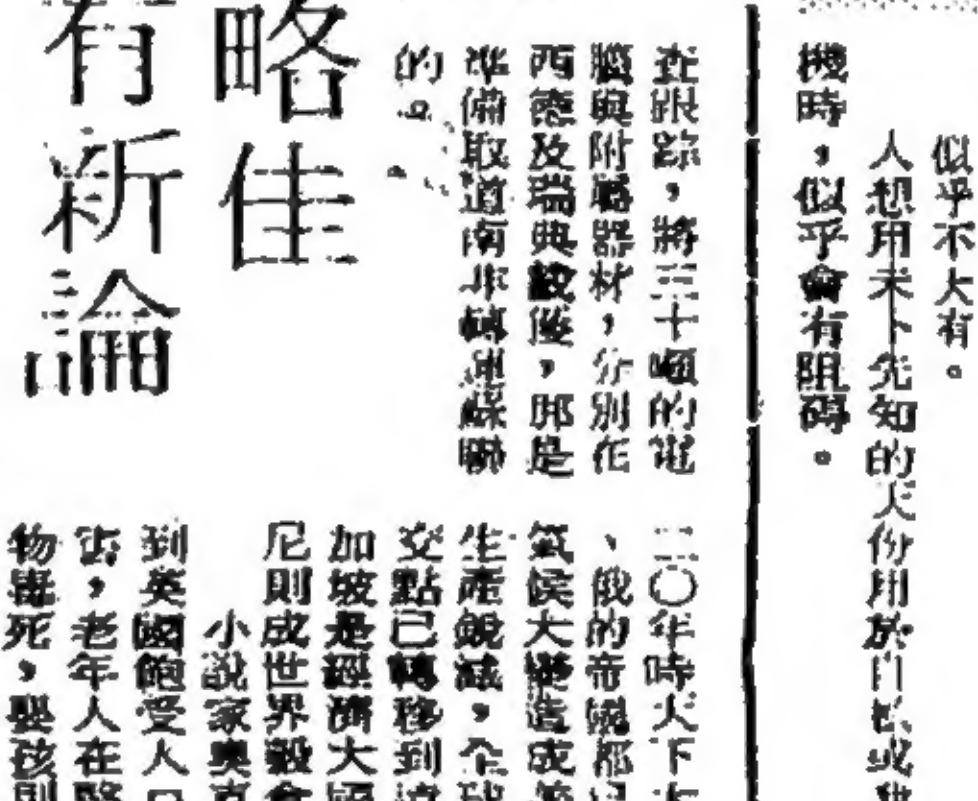 似乎不大有。
人想用未卜先知的天份用於自私或
機時，似乎會有阻碍。
查跟踪，將三十噸的電
腦與附屬器材，分別在
西德及瑞典截獲，那是
準備取道南非轉運蘇聯
的。
略佳
有新論
二〇年時天下大
、俄的帝國都已
氣候大變造成
生產銳減，全球
交點已轉移到
加坡是經濟大國
尼則成世界穀倉
小說家奧克
到英國飽受人口
害，老年人在醫
物毒死，嬰孩則